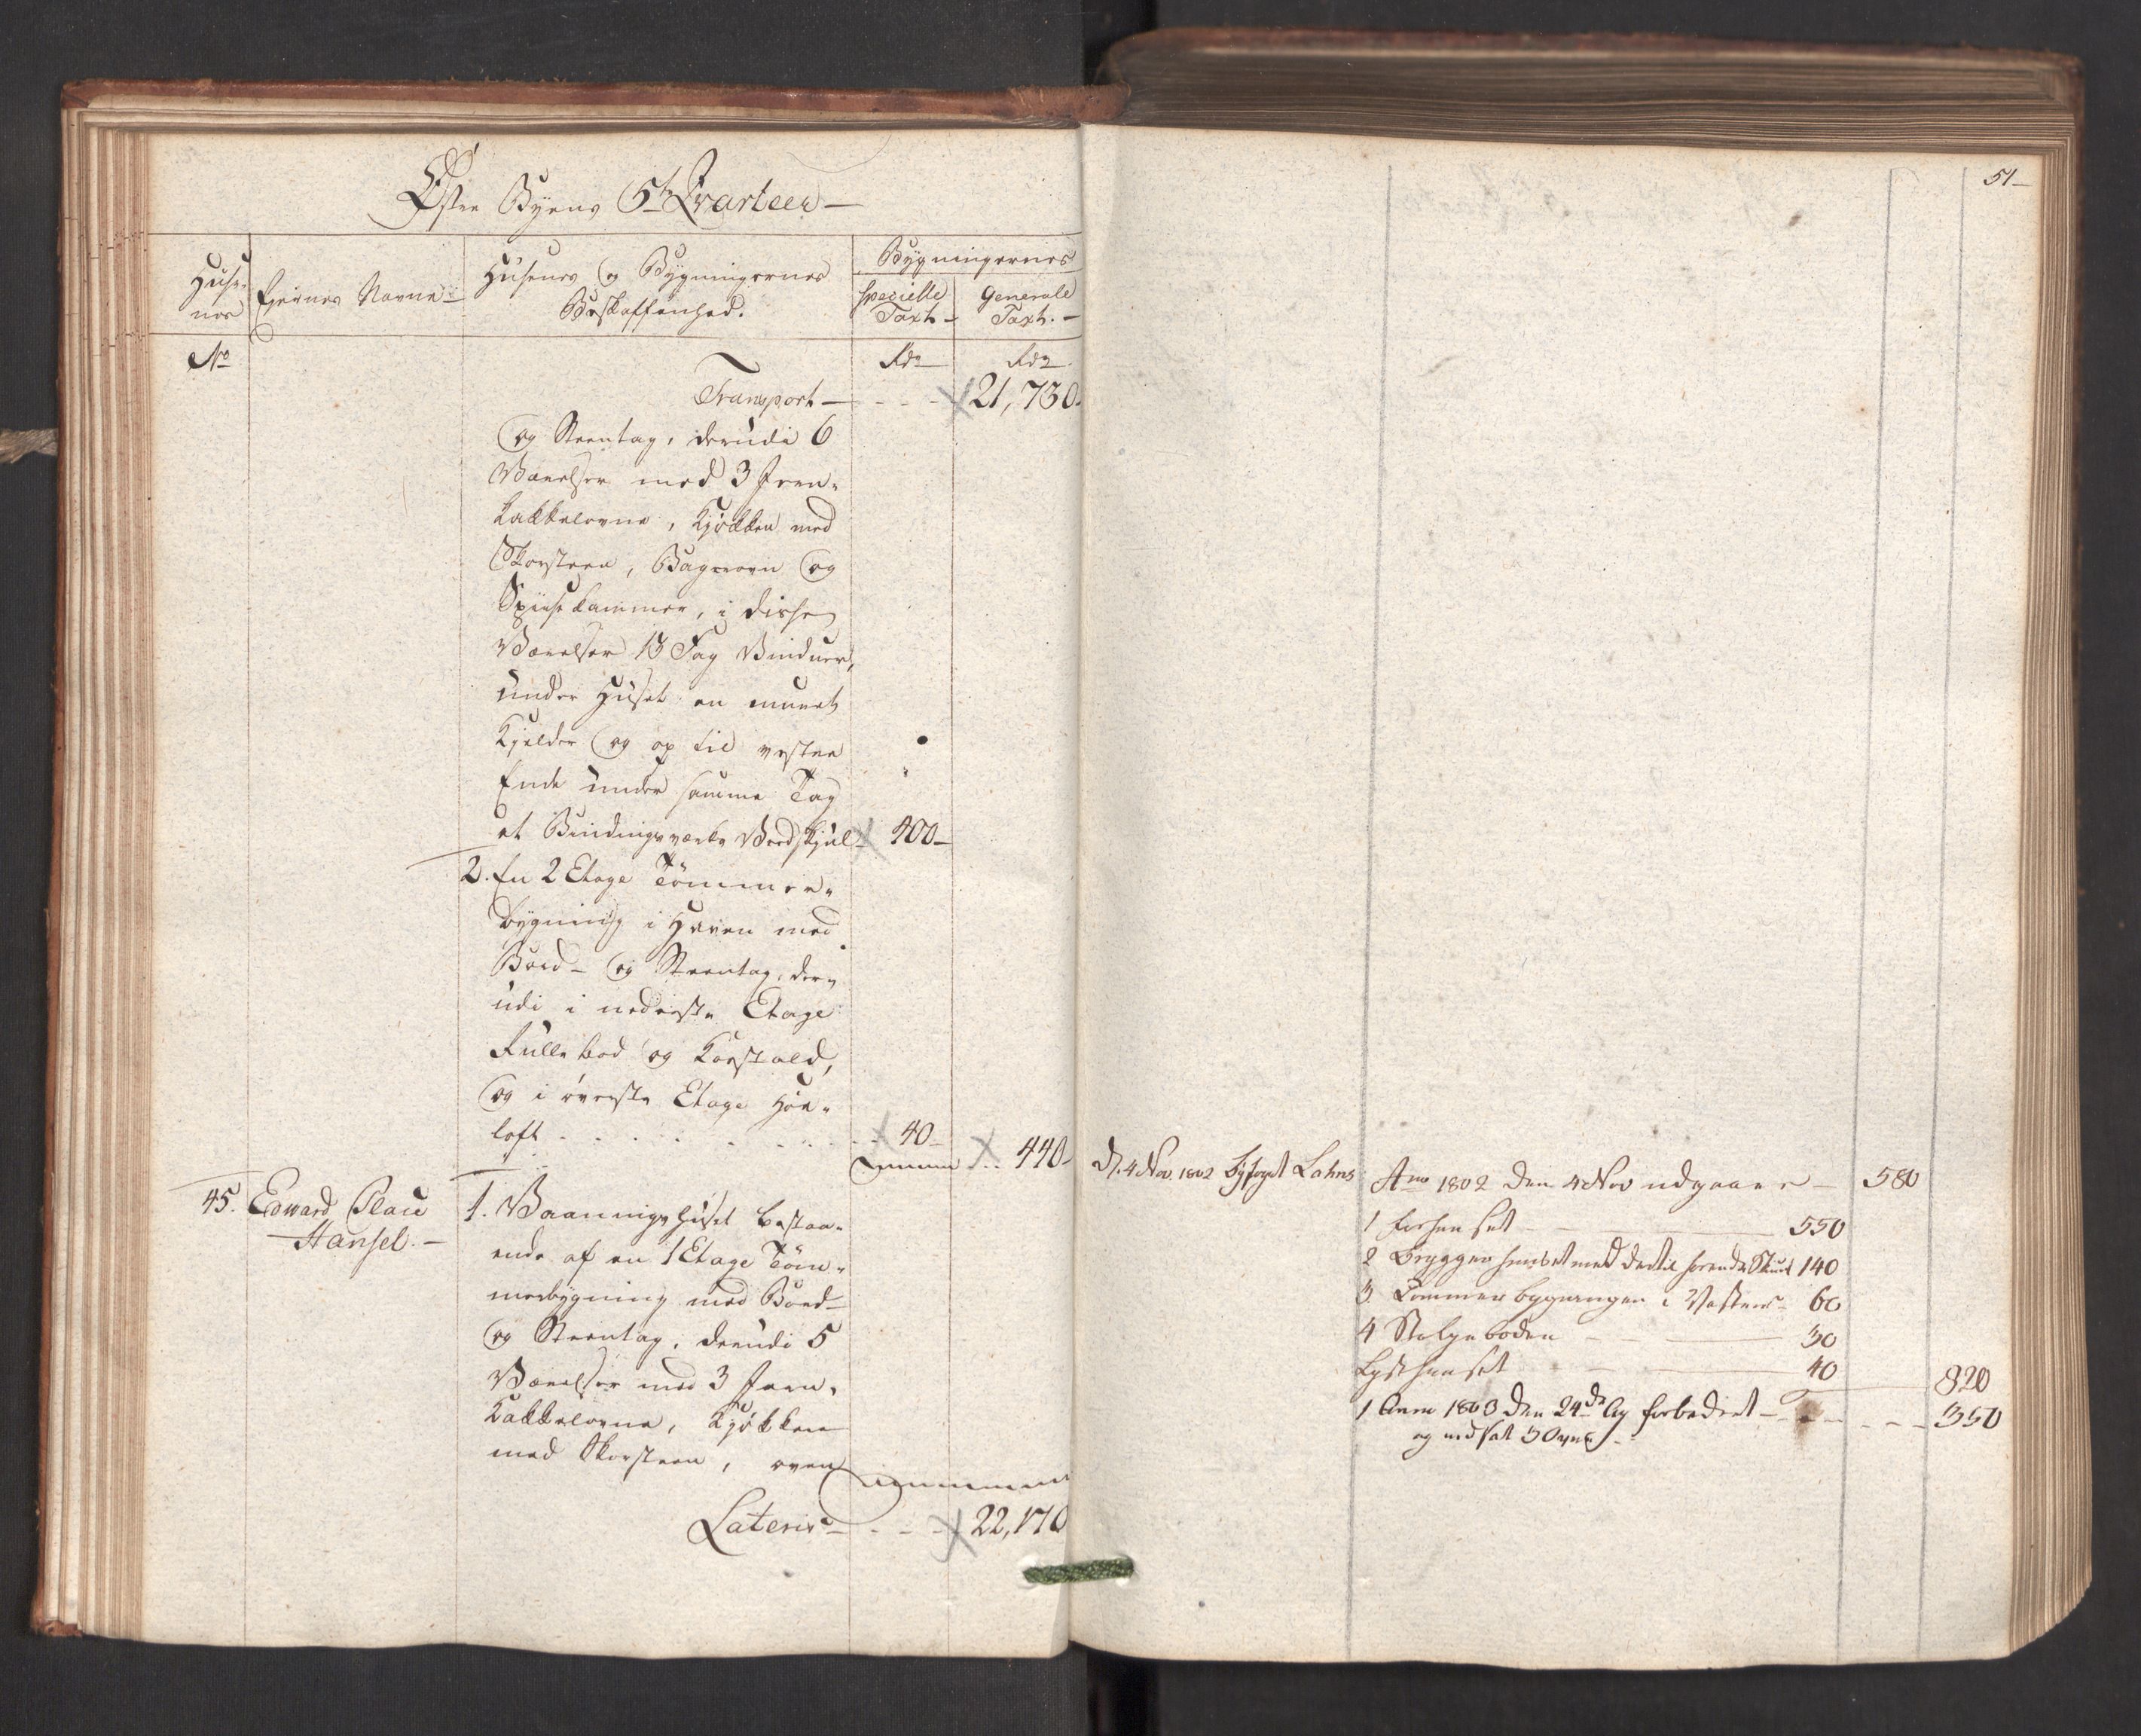 Østre Byens 5te Qvarteer
Huse-
nes
Ejernes Navne
Husenes og Bygningernes
Beskaffenhed.
Bygningernes
Specielle
Taxt
Generale
Taxt.
No
Rdr
Rdr
Transport 21,730
og Steentag, derudi 6
Værelser med 3 Jern-
kakkelovne, Kjøkken med
Skorsteen, Bagerovn og
Spiisekammer, i disse
Værelser 13 Fag Vinduer,
under Huset en muret
Kjelder og op til vestre
Ende under samme Tag
et Bindingsværks Vedskjul 400
2. En 2 Etage Tømmer-
bygning i Haven med
Bord- og Steentag, der-
udi i nederste Etage
Rullebod og Koestald,
og i øverste Etage Høe-
loft 40
440
45. Edward Clau
Hansel.
1. Vaaningshuset bestaa-
ende af en 1 Etage Tøm-
merbygning med Bord-
og Steentag, derudi 5
Værelser med 3 Jern-
kakkelovne, Kjøkken
med Skorsteen, oven
Lateris 22,170
51
d. 4 Nov. 1802 Byfoget Lahns
Ano 1802 den 4 Nov udgaaer 580
1 forhuuset 550
2 Bryggerhuuset med dertil hørende Skuur 140
3 Tømmerbygningen i Vesten 60
4 Stolpeboden 30
Lysthuuset 40
820
1 Anno 1803 den 24de Ag forbedret 350
og nedsat 3 Ovne